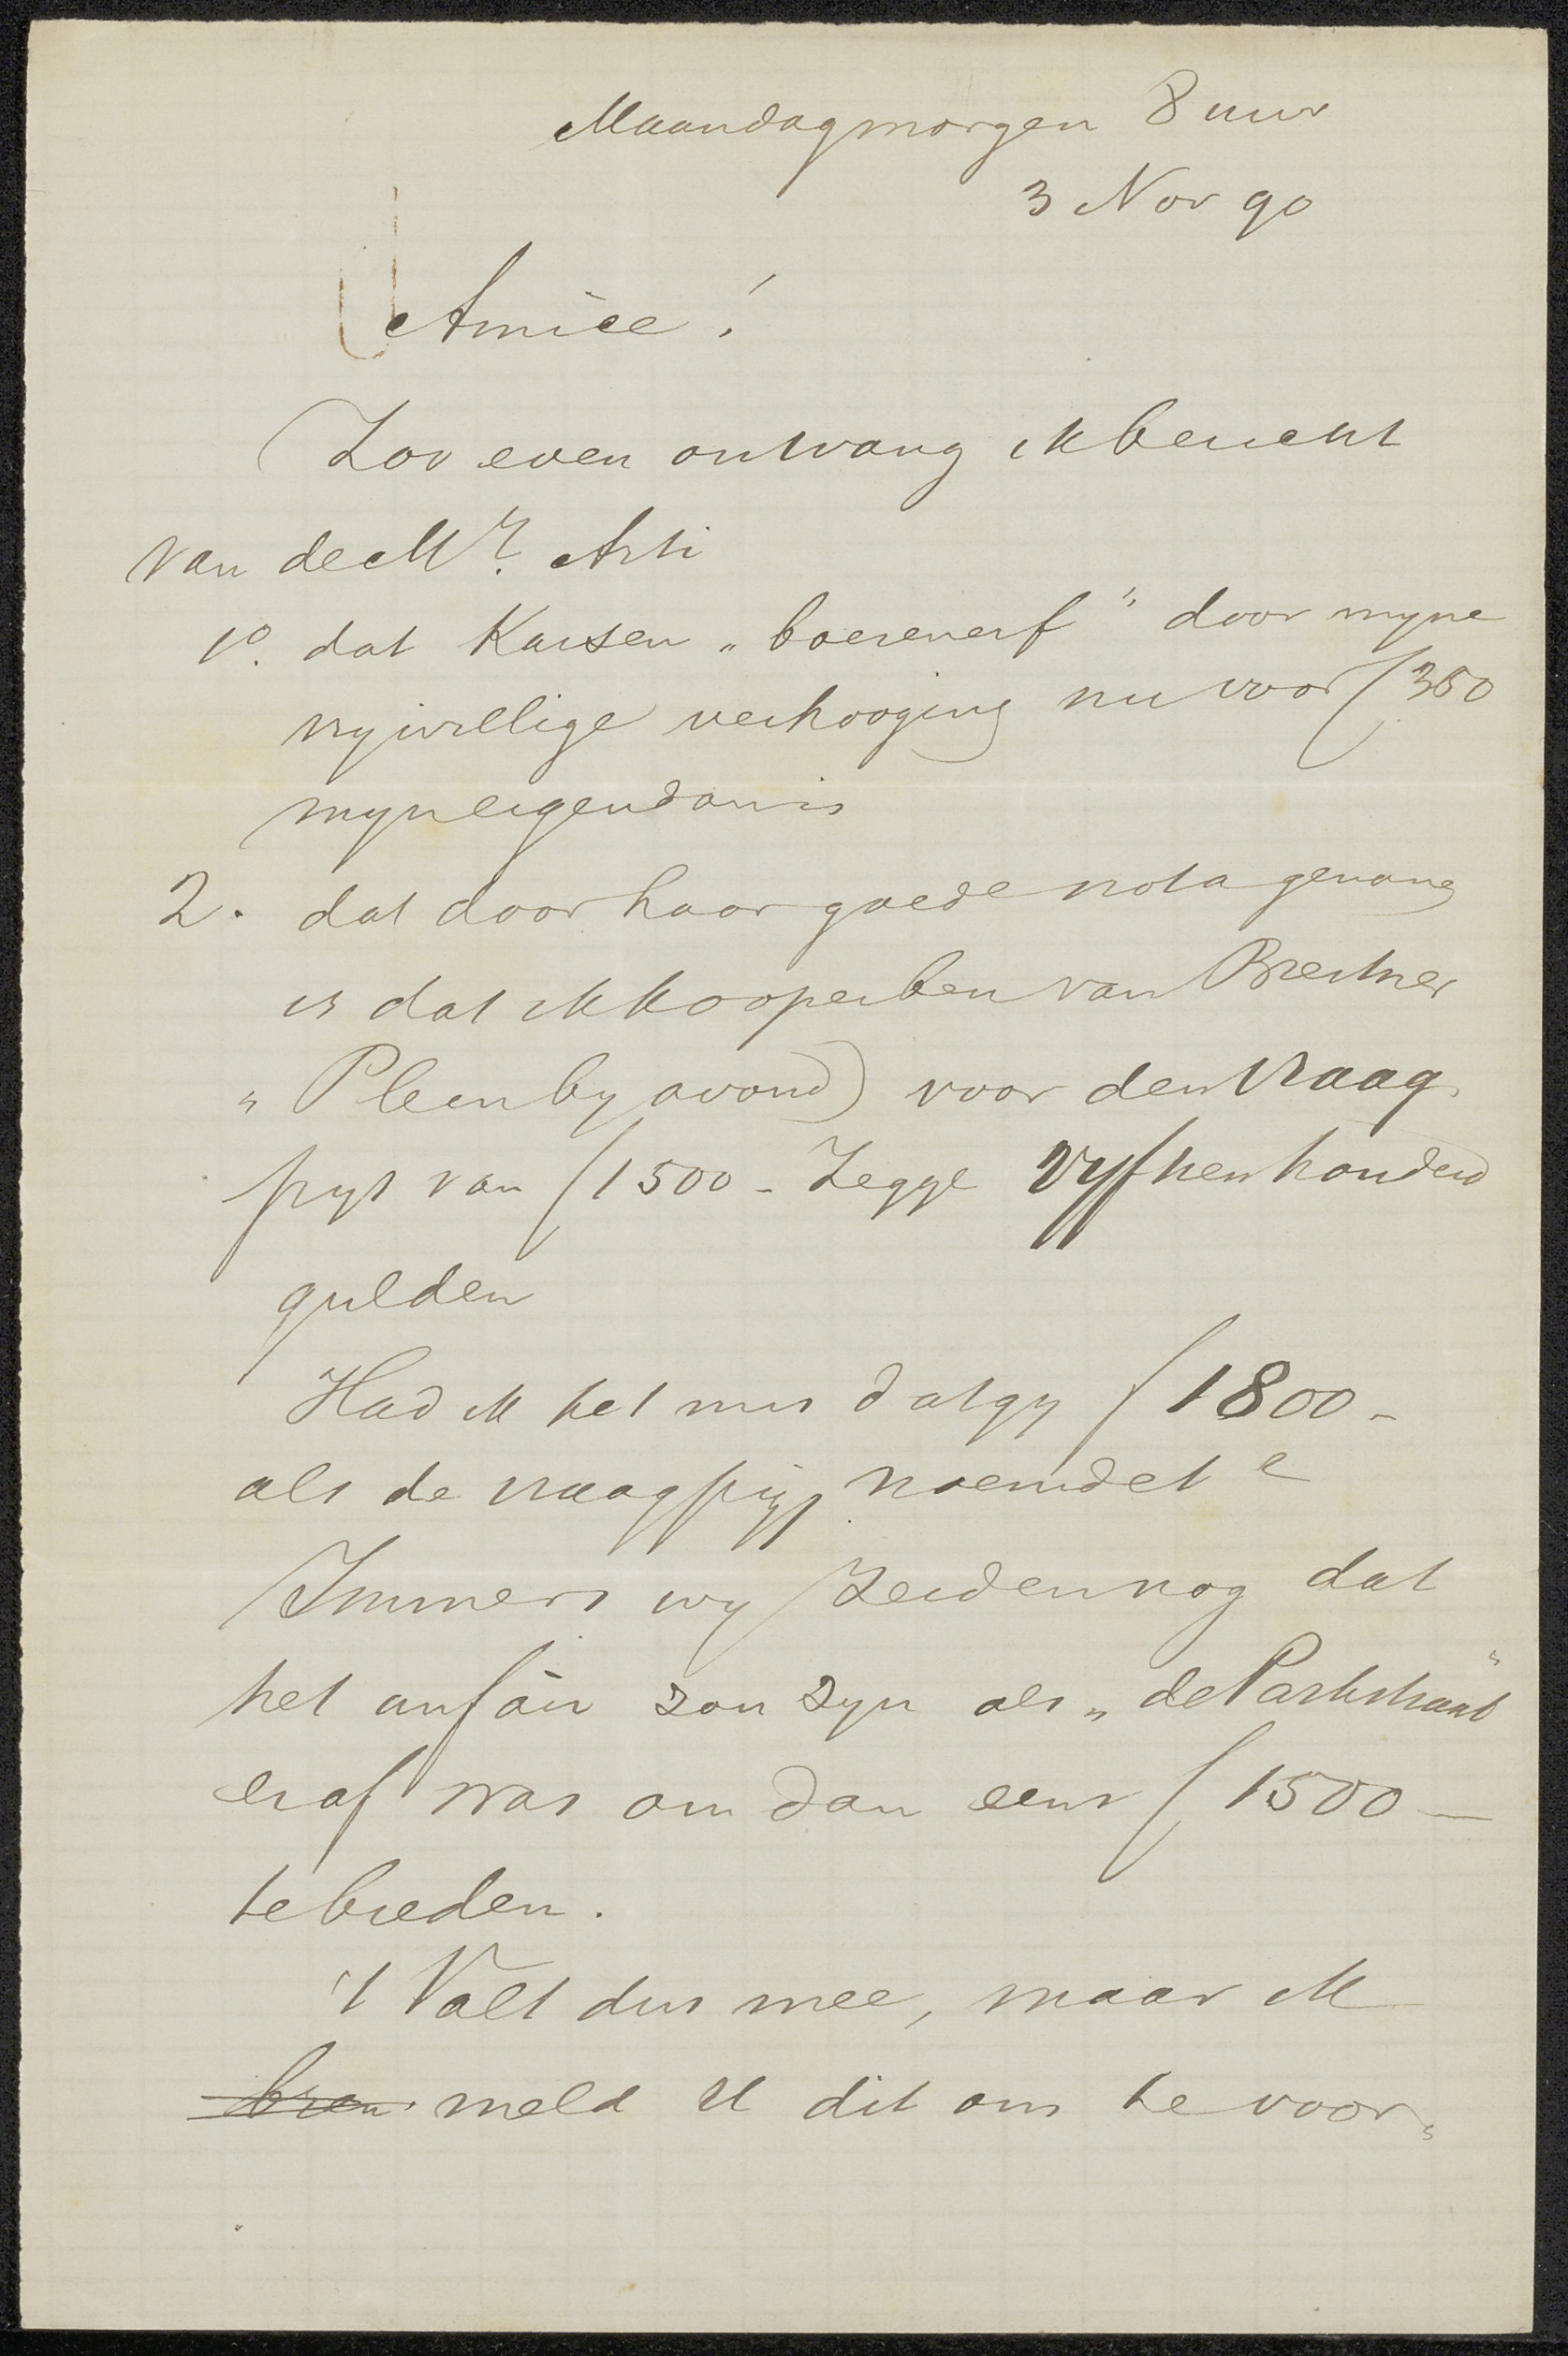 Maandagmorgen 8 uur
3 Nov 90
Amice!
Zoo even ontvang ik bericht
van de Mij. Arti
1o. dat Karsen „boerenerf" door myne
vrywillige verhooging nu voor f 350
myn eigendom is
2. dat door haar goede nota genom
is dat ik kooper ben van Breitner
„Plein by avond) voor den Vraag
prys van f 1500 - Zegge Vyftienhonderd
gulden
Had ik het mis dat gy f 1800 -
als de vraagprys noemdet
Immers wy zeiden nog dat
het anfäir zou zyn als „de Parkstraat"
eraf was om dan eens f 1500 —
te bieden.
't Valt dus mee, maar ik
meld U dit om te voor„